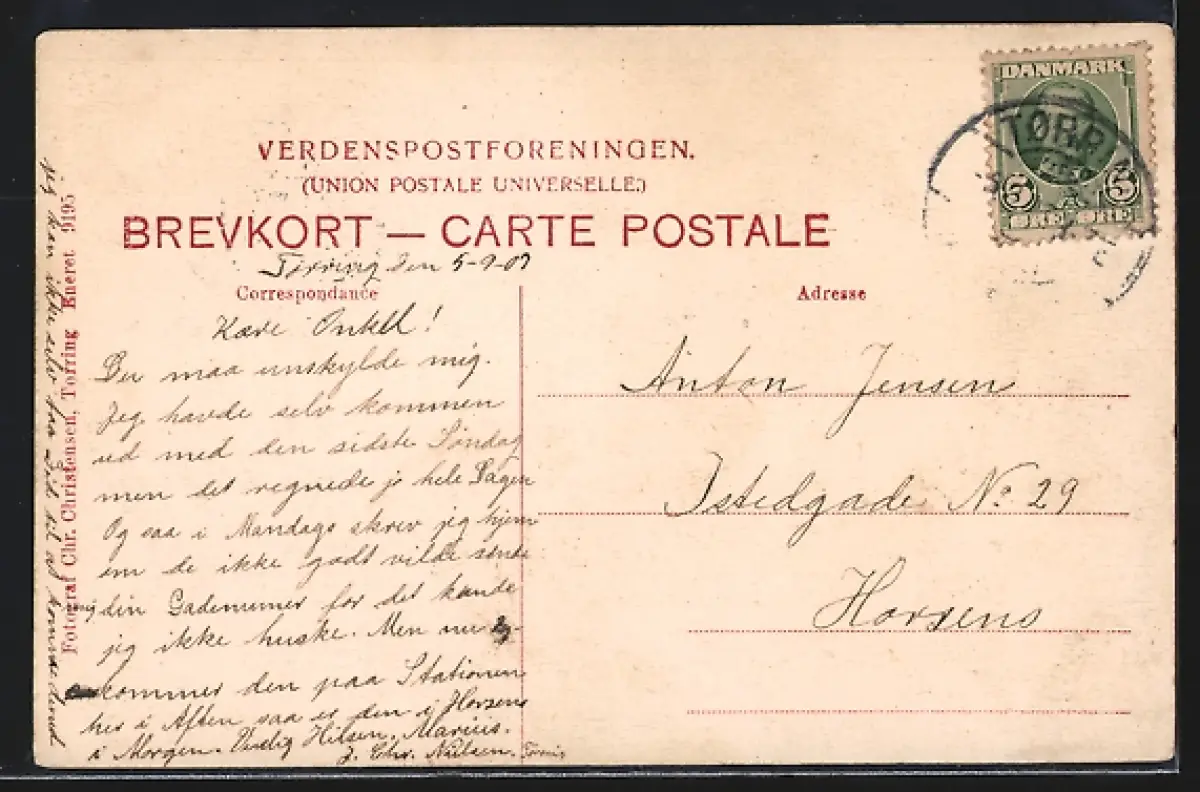 DANMARK
TØRR
5 5
ØRE ØRE
VERDENSPOSTFORENINGEN.
(UNION POSTALE UNIVERSELLE.)
BREVKORT — CARTE POSTALE
Tørring den 5-9-07
Correspondance
Kære Onkel!
Du maa unskylde mig.
Jeg havde selv kommen
ud med den sidste Søndag
men det regnede jo hele Dagen
Og saa i Mandags skrev jeg hjem
om de ikke godt vilde sende
mig din Gadenumer for det kunde
jeg ikke huske. Men nu
kommer den paa Stationen
her i Aften saa er den i Horsens
i Morgen. Venlig Hilsen. Marius.
J. Chr. Nielsen.
Adresse
Anton Jensen
Istedgade No. 29
Horsens
Fotograf Chr. Christensen, Torring Eneret 9195
Jeg kan ikke faa Tid til at komme derud